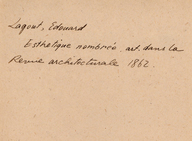 Lagout, Edouard
Esthétique nombrée, art. dans la
Revue architecturale 1862.